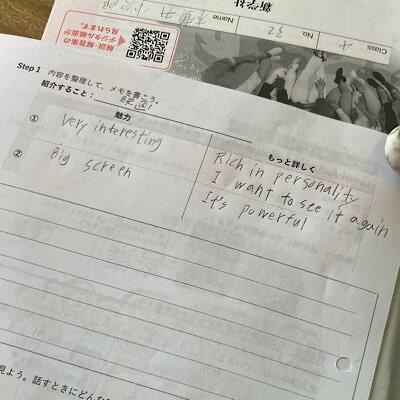 新学社
Class
No. 32
Name
解説・解答集の
デジタル紙面が
見られます。
Step 1 内容を整理して、メモを書こう。
紹介すること： 映画
魅力
もっと詳しく
① Very interesting
② Big screen
Rich in personality
I want to see it again
It's powerful
見よう。話すときにどんな